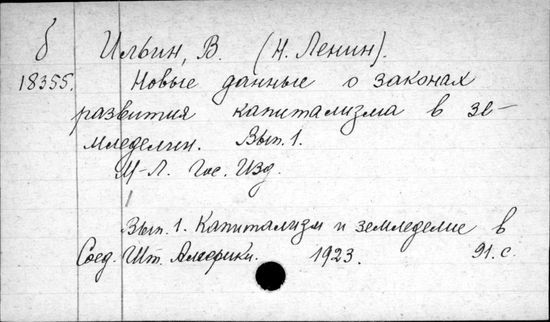 б Ильин, В. (Н. Ленин).
18355. Новые данные о законах
развития капитализма в зе-
мледелии. Вып. 1.
М-Л. Гос. Изд.
Вып. 1. Капитализм и земледелие в
Соед. Шт. Америки. 1923. 91. с.